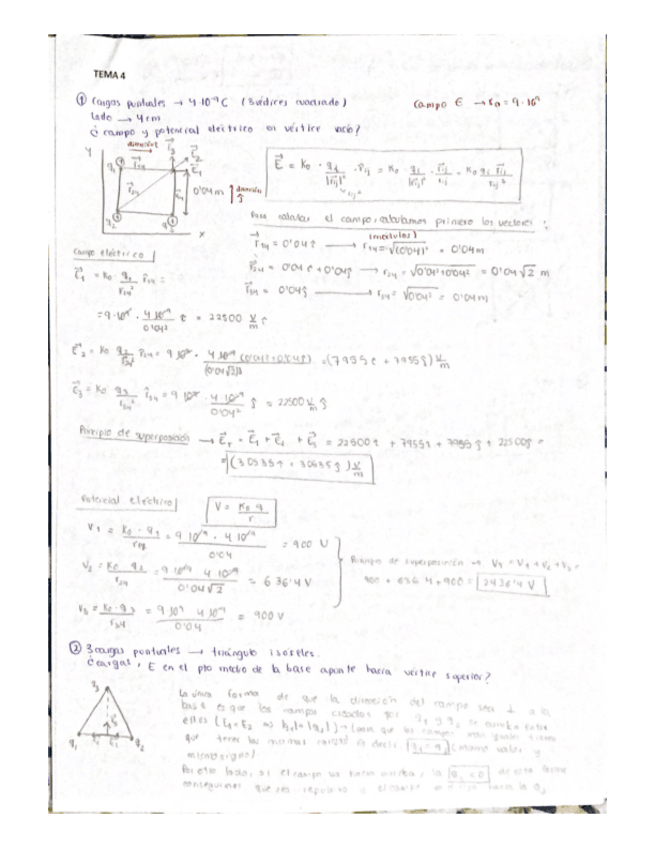 TEMA 4
① Cargas puntuales → 4·10⁻⁹C (3 vértices cuadrado)
Campo E → K₀ = 9·10⁹
lado → 4cm
¿ campo y potencial eléctrico en vértice vacío?
dirección
Y
q₁
q₂
q₃
X
0'04 m
dirección
E⃗ = K₀ · q₁/|r⃗ij|² · r̂ij = K₀ · qi/|rij|² · r⃗ij/rij = K₀ qi r⃗ij/rij³
Para calcular el campo, calculamos primero los vectores:
(módulos)
r⃗₁₄ = 0'04 î → r₁₄ = √(0'04)² = 0'04m
r⃗₂₄ = 0'04 î + 0'04 ĵ → r₂₄ = √0'04²+0'04² = 0'04√2 m
r⃗₃₄ = 0'04 ĵ → r₃₄ = √0'04² = 0'04m
Campo eléctrico
E⃗₁ = K₀ · q₁/r₁₄² r̂₁₄ =
= 9·10⁹ · 4·10⁻⁹/0'04² î = 22500 V/m î
E⃗₂ = K₀ q₂/r₂₄³ r⃗₂₄ = 9·10⁹ · 4·10⁻⁹(0'04î+0'04ĵ)/(0'04√2)³ = (7955 î + 7955 ĵ) V/m
E⃗₃ = K₀ q₃/r₃₄² r̂₃₄ = 9·10⁹ · 4·10⁻⁹/0'04² ĵ = 22500 V/m ĵ
Principio de superposición → E⃗T = E⃗₁ + E⃗₂ + E⃗₃ = 22500 î + 7955 î + 7955 ĵ + 22500 ĵ =
= (30955 î + 30955 ĵ) V/m
Potencial eléctrico
V = K₀ q/r
V₁ = K₀ · q₁/r₁₄ = 9·10⁹ · 4·10⁻⁹/0'04 = 900 V
V₂ = K₀ q₂/r₂₄ = 9·10⁹ 4·10⁻⁹/0'04√2 = 636'4 V
Principio de superposición → VT = V₁ + V₂ + V₃ =
900 + 636'4 + 900 = 2436'4 V
V₃ = K₀ · q₃/r₃₄ = 9·10⁹ 4·10⁻⁹/0'04 = 900 V
② 3 cargas puntuales → triángulo isósceles.
¿cargas, E en el pto medio de la base apunte hacia vértice superior?
q₃
q₁
q₂
La única forma de que la dirección del campo sea ⊥ a la
base es que los campos creados por q₁ y q₂ se anulen entre
ellos (E₁ = E₂ ⇒ |q₁| = |q₂|) → para que los campos sean iguales tienen
que tener las mismas es decir q₁ = q₂ (mismo valor y
mismo signo)
Por otro lado, si el campo va hacia arriba, la q₃ < 0 de esta forma
conseguimos que y el campo hacia la q₃